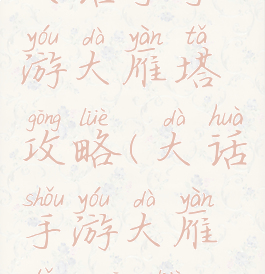 yóu dà yàn tǎ
游大雁塔
gōng lüè dà huà
攻略(大话
shǒu yóu dà yàn
手游大雁